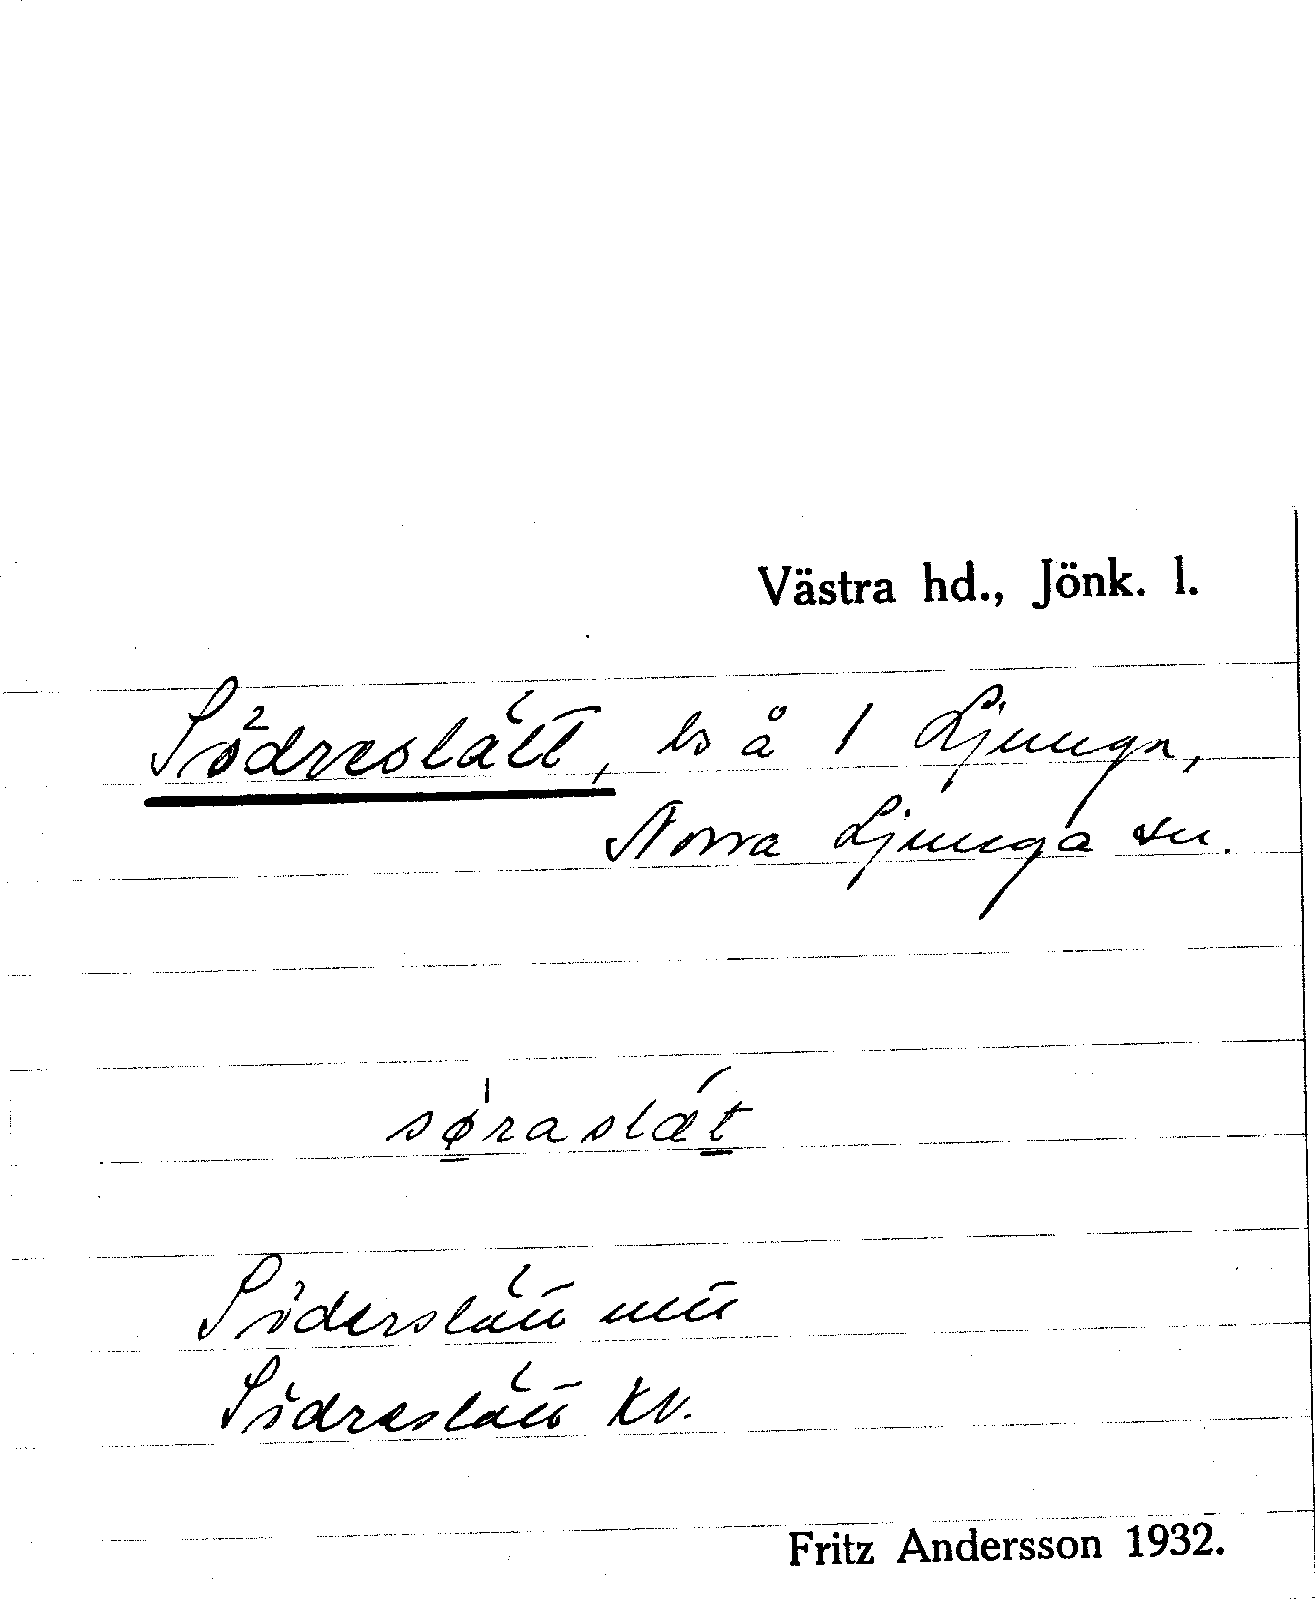 Västra hd., Jönk. l.
Södreslätt, ls å 1 Ljunga,
Norra Ljunga sn.
søraslæt
Söderslätt mtl
Södreslätt kv.
Fritz Andersson 1932.